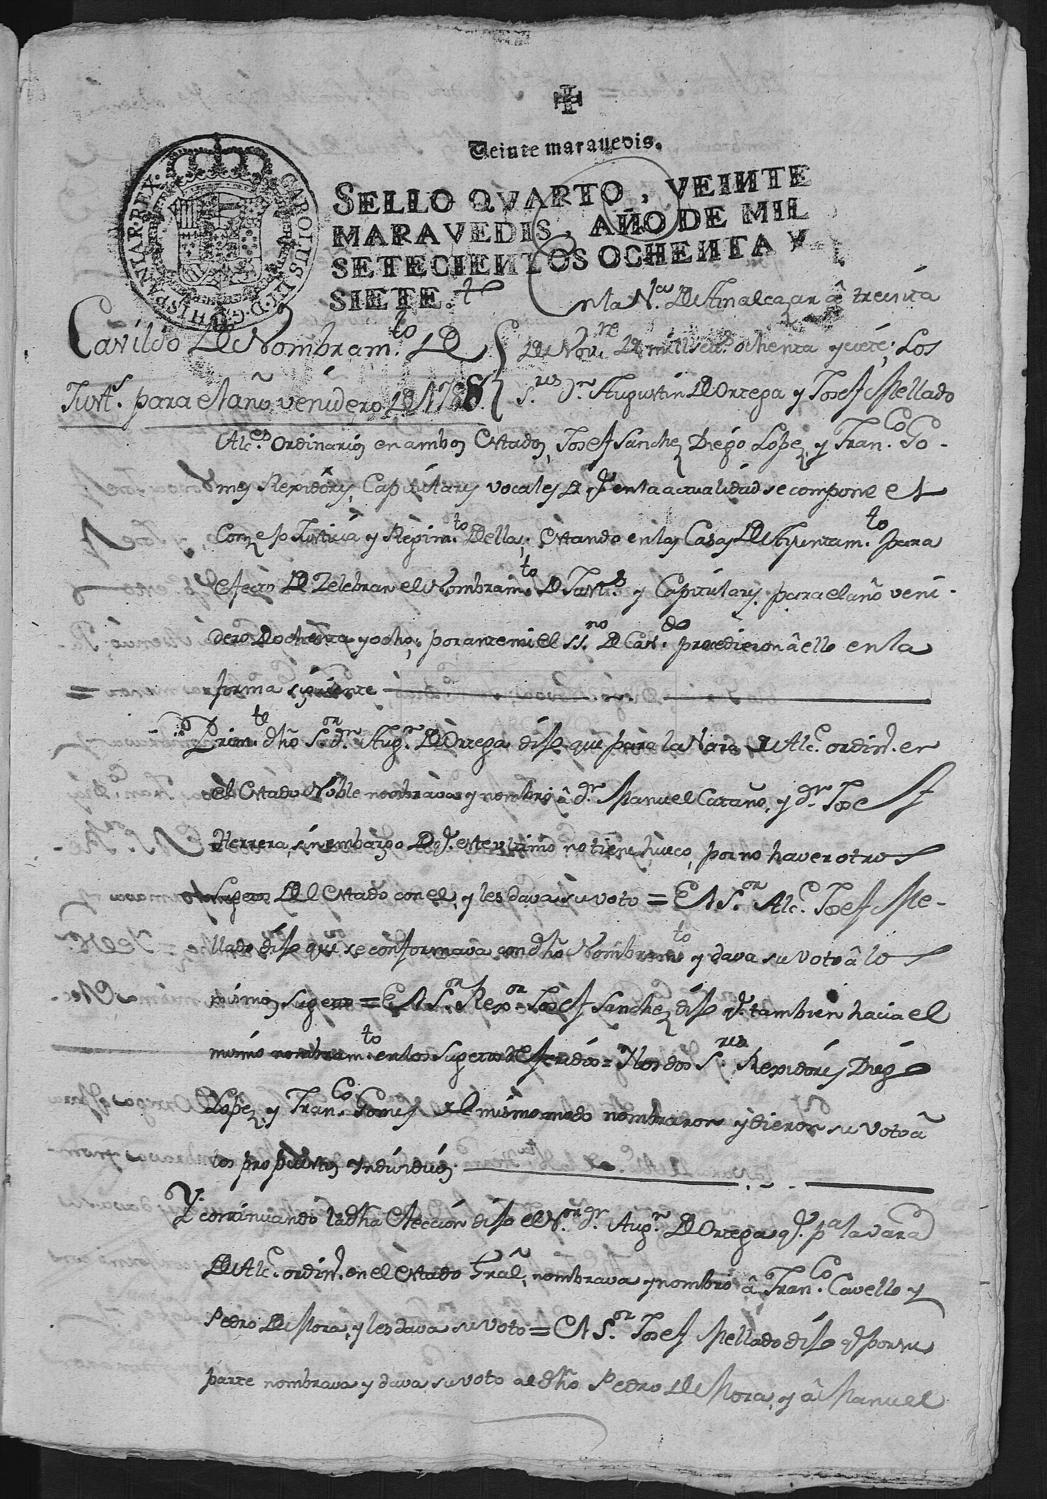 Veinte maravedis.
SELLO QVARTO, VEINTE
MARAVEDIS, AÑO DE MIL
SETECIENTOS OCHENTA Y
SIETE.
CAROLUS III D G HISPANIAR REX
Cavildo De Nombram.to De
Just.s para el año venidero De 1788
En la V.a De Aznalcazar â treinta
De Nov.re De mill set.s ochenta y siete; Los
S.res D.n Augustin De Ortega y Josef Mellado
Alc.es Ordinarios en ambos estados, Josef Sanchez Diego Lopez, y Fran.co Go-
mes Rexidores, Capitulares vocales De q.e en la actualidad se compone el
Conzejo Justicia y Regim.to De ella; estando en las Casas De Ayuntam.to para
efecto De Zelebrar el Nombram.to De Just.s y Capitulares para el año veni-
dero De ochenta y ocho; por ante mi el ss.no De Cav.do procedieron â ello en la
forma siguiente
Prim.te dho S.or d.n Aug.n De Ortega dijo que para la Vara De Alc.e ordin.o en
el estado Noble nombrava y nombro â d.n Manuel Cataño, y d.n Josef
Herrera, sin embargo De q.e este ultimo no tiene hueco, por no haver otros
sugetos Del estado con el, y les dava su voto = El S.or Alc.e Josef Me-
llado dijo que se conformava con dho Nombram.to y dava su voto â los
mismos sugetos = El S.or Rex.or Josef Sanchez dijo q.e tambien hacia el
mismo nombram.to en los sugetos referidos = Y los dos S.res Rexidores Diego
Lopez, y Fran.co Gomes del mismo modo nombraron y dieron su voto â
los propuestos Individuos
Y continuando la dha eleccion dijo el S.or d.n Aug.n De Ortega q.e p.a la vara
De Alc.e ordin.o en el estado Gral, nombrava y nombro â Fran.co Cavello y
Pedro De Mora, y les dava su voto = El S.or Josef Mellado dijo q.e por su
parte nombrava y dava su voto al dho Pedro De Mora, y â Manuel